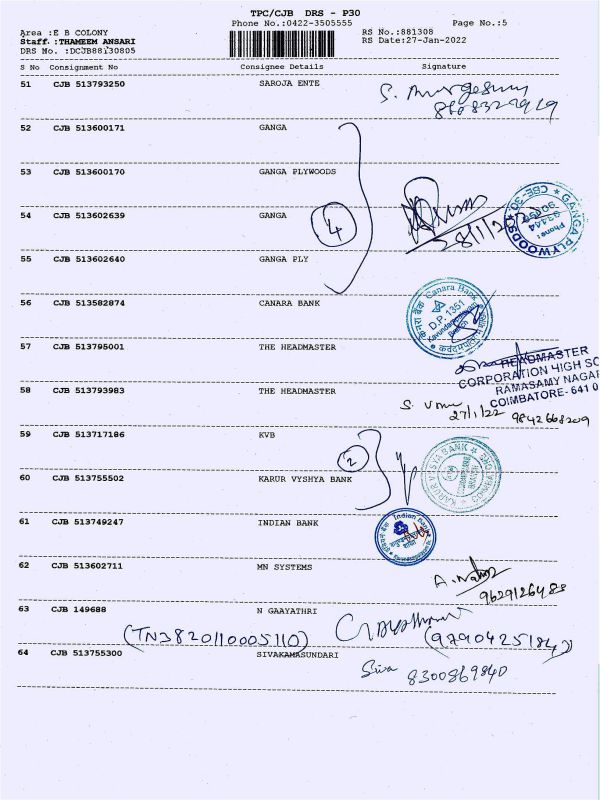 TPC/CJB DRS - P30
Phone No.:0422-3505555
Page No.:5
Area :E B COLONY
RS No.:881308
Staff :THAMEEM ANSARI
RS Date:27-Jan-2022
DRS No. :DCJB88130805
S No Consignment No Consignee Details Signature
51 CJB 513793250 SAROJA ENTE
S.
52 CJB 513600171 GANGA
53 CJB 513600170 GANGA PLYWOODS
54 CJB 513602639 GANGA
4
GANGA PLYWOODS
CBE-30
Phone:
55 CJB 513602640 GANGA PLY
56 CJB 513582874 CANARA BANK
Canara Bank
D.P. 1351
Branch
57 CJB 513795001 THE HEADMASTER
HEADMASTER
CORPORATION HIGH SC
RAMASAMY NAGAR
COIMBATORE- 641 0
58 CJB 513793983 THE HEADMASTER
27/1/22 9842668209
59 CJB 513717186 KVB
2
KARUR VYSYA BANK
60 CJB 513755502 KARUR VYSHYA BANK
61 CJB 513749247 INDIAN BANK
Indian Bank
62 CJB 513602711 MN SYSTEMS
9629126483
63 CJB 149688 N GAAYATHRI
(TN3820110005110)
64 CJB 513755300 SIVAKAMASUNDARI
Siva 8300869840